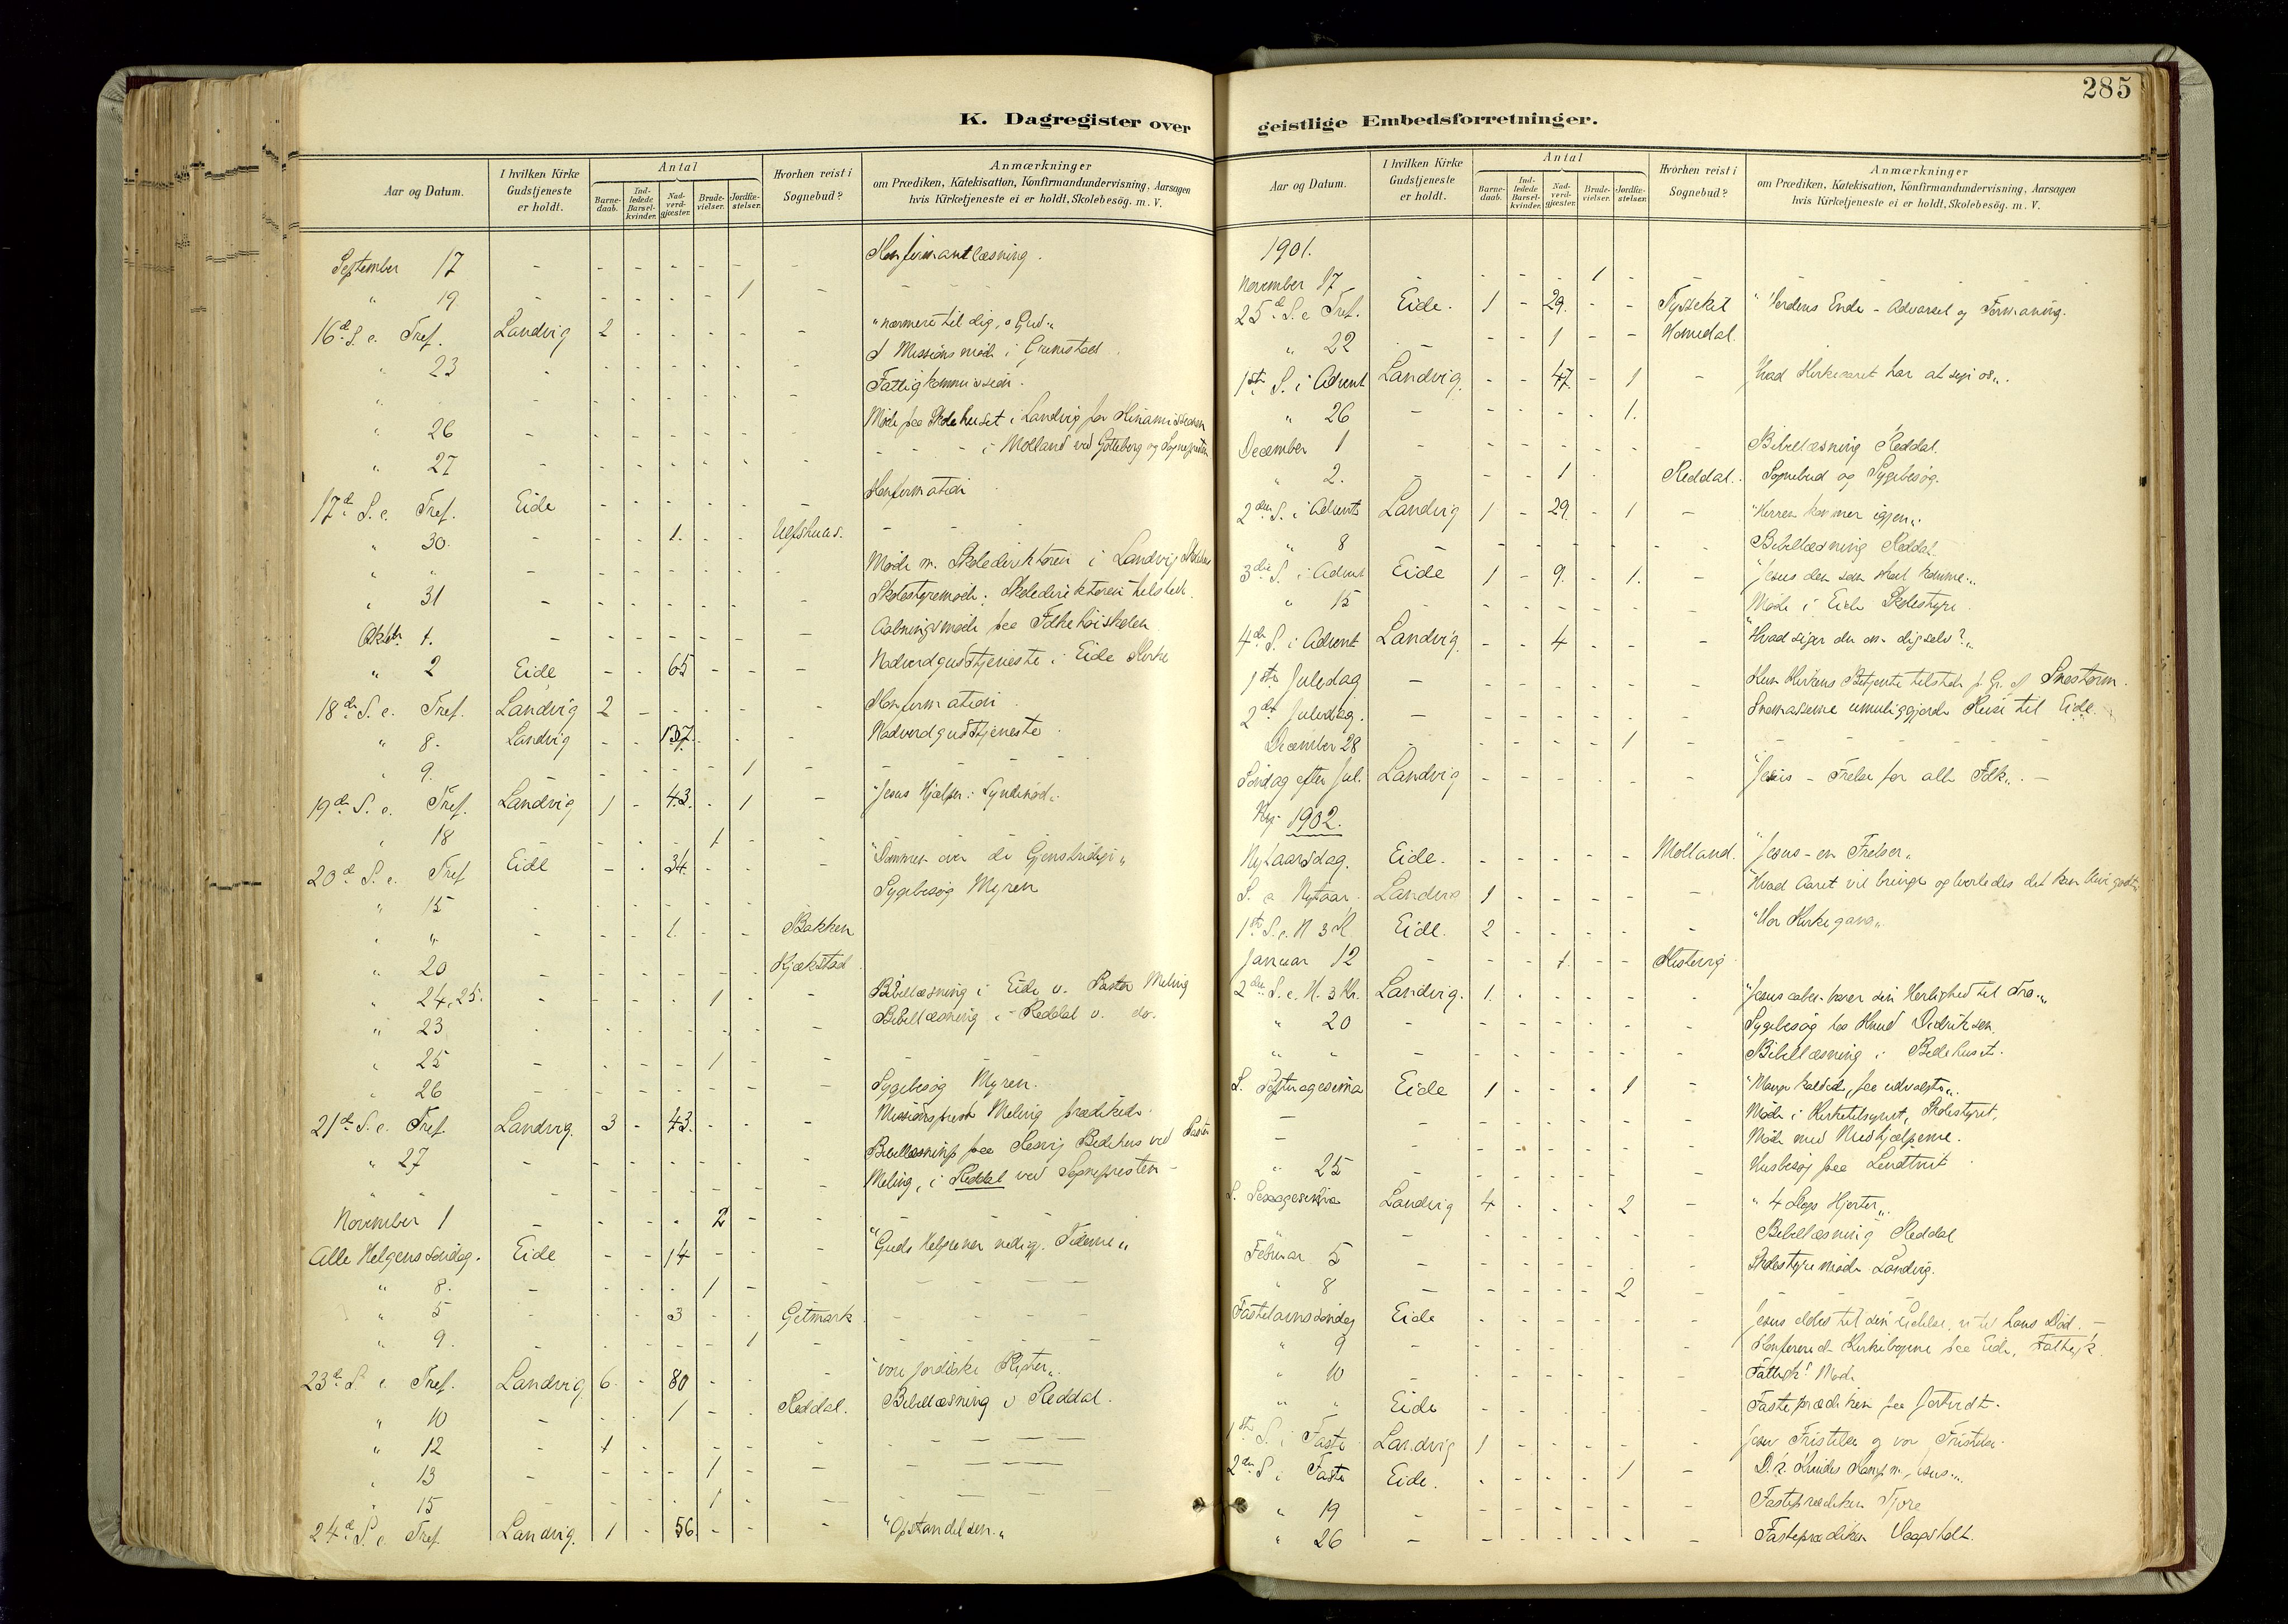 285
K. Dagregister over geistlige Embedsforretninger.
Aar og Datum. I hvilken Kirke Gudstjeneste er holdt. Antal Barnedaab. Indledede Barselkvinder. Nadverdgjæster. Brudevielser. Jordfæstelser. Hvorhen reist i Sognebud? Anmærkninger om Prædiken, Katekisation, Konfirmandundervisning, Aarsagen hvis Kirketjeneste ei er holdt, Skolebesøg. m. V.
September 17 - - - - - - - Konfirmantlæsning.
" 19. - - - - - 1 -
16d. S. e. Tref. Landvig 2 - - - - - "nærmere til dig, o Gud"
" 23 - - - - - - Missionsmøde i Grimstad
" - - - - - - Fattigkommission.
" 26 - - - - - - - Møde paa Skolehuset i Landvig for Kinamissionen
" 27 - - - - - - - i Molland ved Gøtteberg og Sognepresten
17d. S. e. Tref. Eide - - - - - - Konfirmation
" 30. - - - 1. - - -
" " - - - - - - Møde m. Skoledirektøren i Landvig
" 31 - - - - - - - Skolestyremøde; Skoledirektøren tilstede.
Oktbr. 1. - - - - - - - Aabningsmøde paa Folkehøiskolen
" 2 Eide - - 65 - - - Nadverdgudstjeneste i Eide Kirke
18de S. e. Tref. Landvig 2 - - - - - Konfirmation
" 8. Landvig - - 137. - - Nadverdgudstjeneste.
" 9. - - - - - 1 -
19de S. e. Tref. Landvig 1 - 43. - 1 - "Jesus Hjælper i Syndenød"
" 18 - - - - 1 - -
20de S. e. Tref Eide - - 34. - - - "Dommen over de Gjenstridige"
" 15 - - - - - - - Sygebesøg Myren
" " - - - 1. - - Bakken
" 20 - - - - - - Kjækstad
" 24, 25. - - - - 1 - - Bibellæsning i Eide v. Pastor Meling
" 23 - - - - - - - Bibellæsning i Reddal v. do.
" 25 - - - - 1 - -
" 26 - - - - - - - Sygebesøg Myren.
21de S. e. Tref. Landvig. 3 - 43. - - - Missionsprest Meling prædikede.
" 27 - - - - - - - Bibellæsning paa Bedehus ved Pastor
" " - - - - - - Meling, i Reddal ved Sognepresten -
November 1 - - - - 2 - -
Alle Helgens søndag. Eide - - 14 - - -
" 8. - - - - 1 - -
" 5 - - - 3 - - Gitmark
" 9. - - - - - 1 -
23de S. e. Tref. Landvig 6. - 80 - - - "vore jordiske Pligter"
" 10 - - - 1 - - Reddal. Bibellæsning i Reddal.
" 12 - 1 - - - - -
" 13 - - - - 1 - -
" 15 - - - 1 - -
24de S. e. Tref. Landvig. 1 - 56. - - "Opstandelsen"
Aar og Datum. I hvilken Kirke Gudstjeneste er holdt. Antal Barnedaab. Indledede Barselkvinder. Nadverdgjæster. Brudevielser. Jordfæstelser. Hvorhen reist i Sognebud? Anmærkninger om Prædiken, Katekisation, Konfirmandundervisning, Aarsagen hvis Kirketjeneste ei er holdt, Skolebesøg. m. V.
1901.
November 17 - - - - 1 -
25d. S. e. Tref. Eide. 1 - 29. - - "Verdens Ende - Advarsel og Formaning.
" 22 - - - 1 - - Homedal.
1ste S. i Advent Landvig. - - 47. - 1 - Hvad Kirkeaaret har at sige os".
" 26 - - - - - 1.
December 1 - - - - - - - Bibellæsning Reddal.
" 2. - - - 1 - - Reddal. Sognebud og Sygebesøg.
2den S. i Advent Landvig 1 - 29. - 1 - "Herren kommer igjen".
" 8 - - - - - - - Bibellæsning Reddal.
3die S. i Advent Eide 1 - 9. - 1. - "Jesus den som skal komme".
" 15 - - - - - - - Møde i Eide Skolestyre.
4de S. i Advent Landvig. - - 4 - - - "Hvad siger du om dig selv?"
1ste Juledag - - - - - - - Kun Kirkens Betjente tilstede p. Gr. af Snestorm.
2den Juledag. - - - - - - - Snemasserne umuliggjorde Reise til Eide.
December 28 - - - - - 1 -
Søndag efter Jul. Landvig - - - - - - "Jesus - Frelser for alle Folk". -
1902.
Nytaarsdag. Eide. - - - - - Molland. "Jesus - en Frelser"
S. e. Nytaar. Landvig 1 - - - - - "Hvad Aaret vil bringe og hvorledes det kan blive godt"
1ste S. e. H. 3 K. Eide. 2 - - - - - "Vor Kirkegang".
Januar 12 - - - 1. - -
2den S. e. H. 3 K. Landvig. 1. - - - - - "Jesus aabenbarer sin Herlighed til Tro".
" 20 - - - - - - - Sygebesøg hos Knud Didriksen.
" " - - - - - - - Bibellæsning i Bedehuset.
S. Septuagesima Eide 1 - - - 1 - "Mange kaldede, faa udvalgte".
- - - - - - - Møde i Kirketilsynet, Skolestyret,
- - - - - - - Møde med Medhjælperne.
" 25 - - - - - - - Husbesøg paa
S. Sexagesima Landvig 4 - - - 2 - "4 Slags Hjerter".
- - - - - - - Bibellæsning Reddal
Februar 5 - - - - - - - Skolestyremøde Landvig.
" 8 - - - - - 2 -
Fastelavnssøndag Eide - - - - - -
" 9 - - - - - - - Konfererede Kirkebøgerne paa Eide,
" 10 - - - - - - - Møde
" " Eide - - - - - - Fasteprædiken paa
1ste S. i Faste Landvig 1 - - - - - Jesu Fristelse og vor Fristelse.
2den S. i Faste Eide. - - - - 1 -
" 19 - - - - - - - Fasteprædiken Fjære
" 26 - - - - - - - Fasteprædiken Vaagsholt.